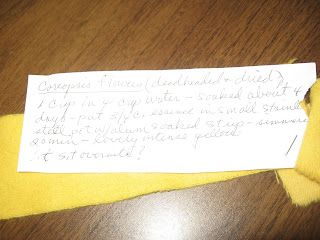 Coreopsis flowers (deadheaded & dried)
1 cup in 2 cups water - soaked about 4
days - put s/c. essence in small stainless
steel pot w/alum soaked strip - simmered
20 min - lovely intense yellow
Let sit overnite?